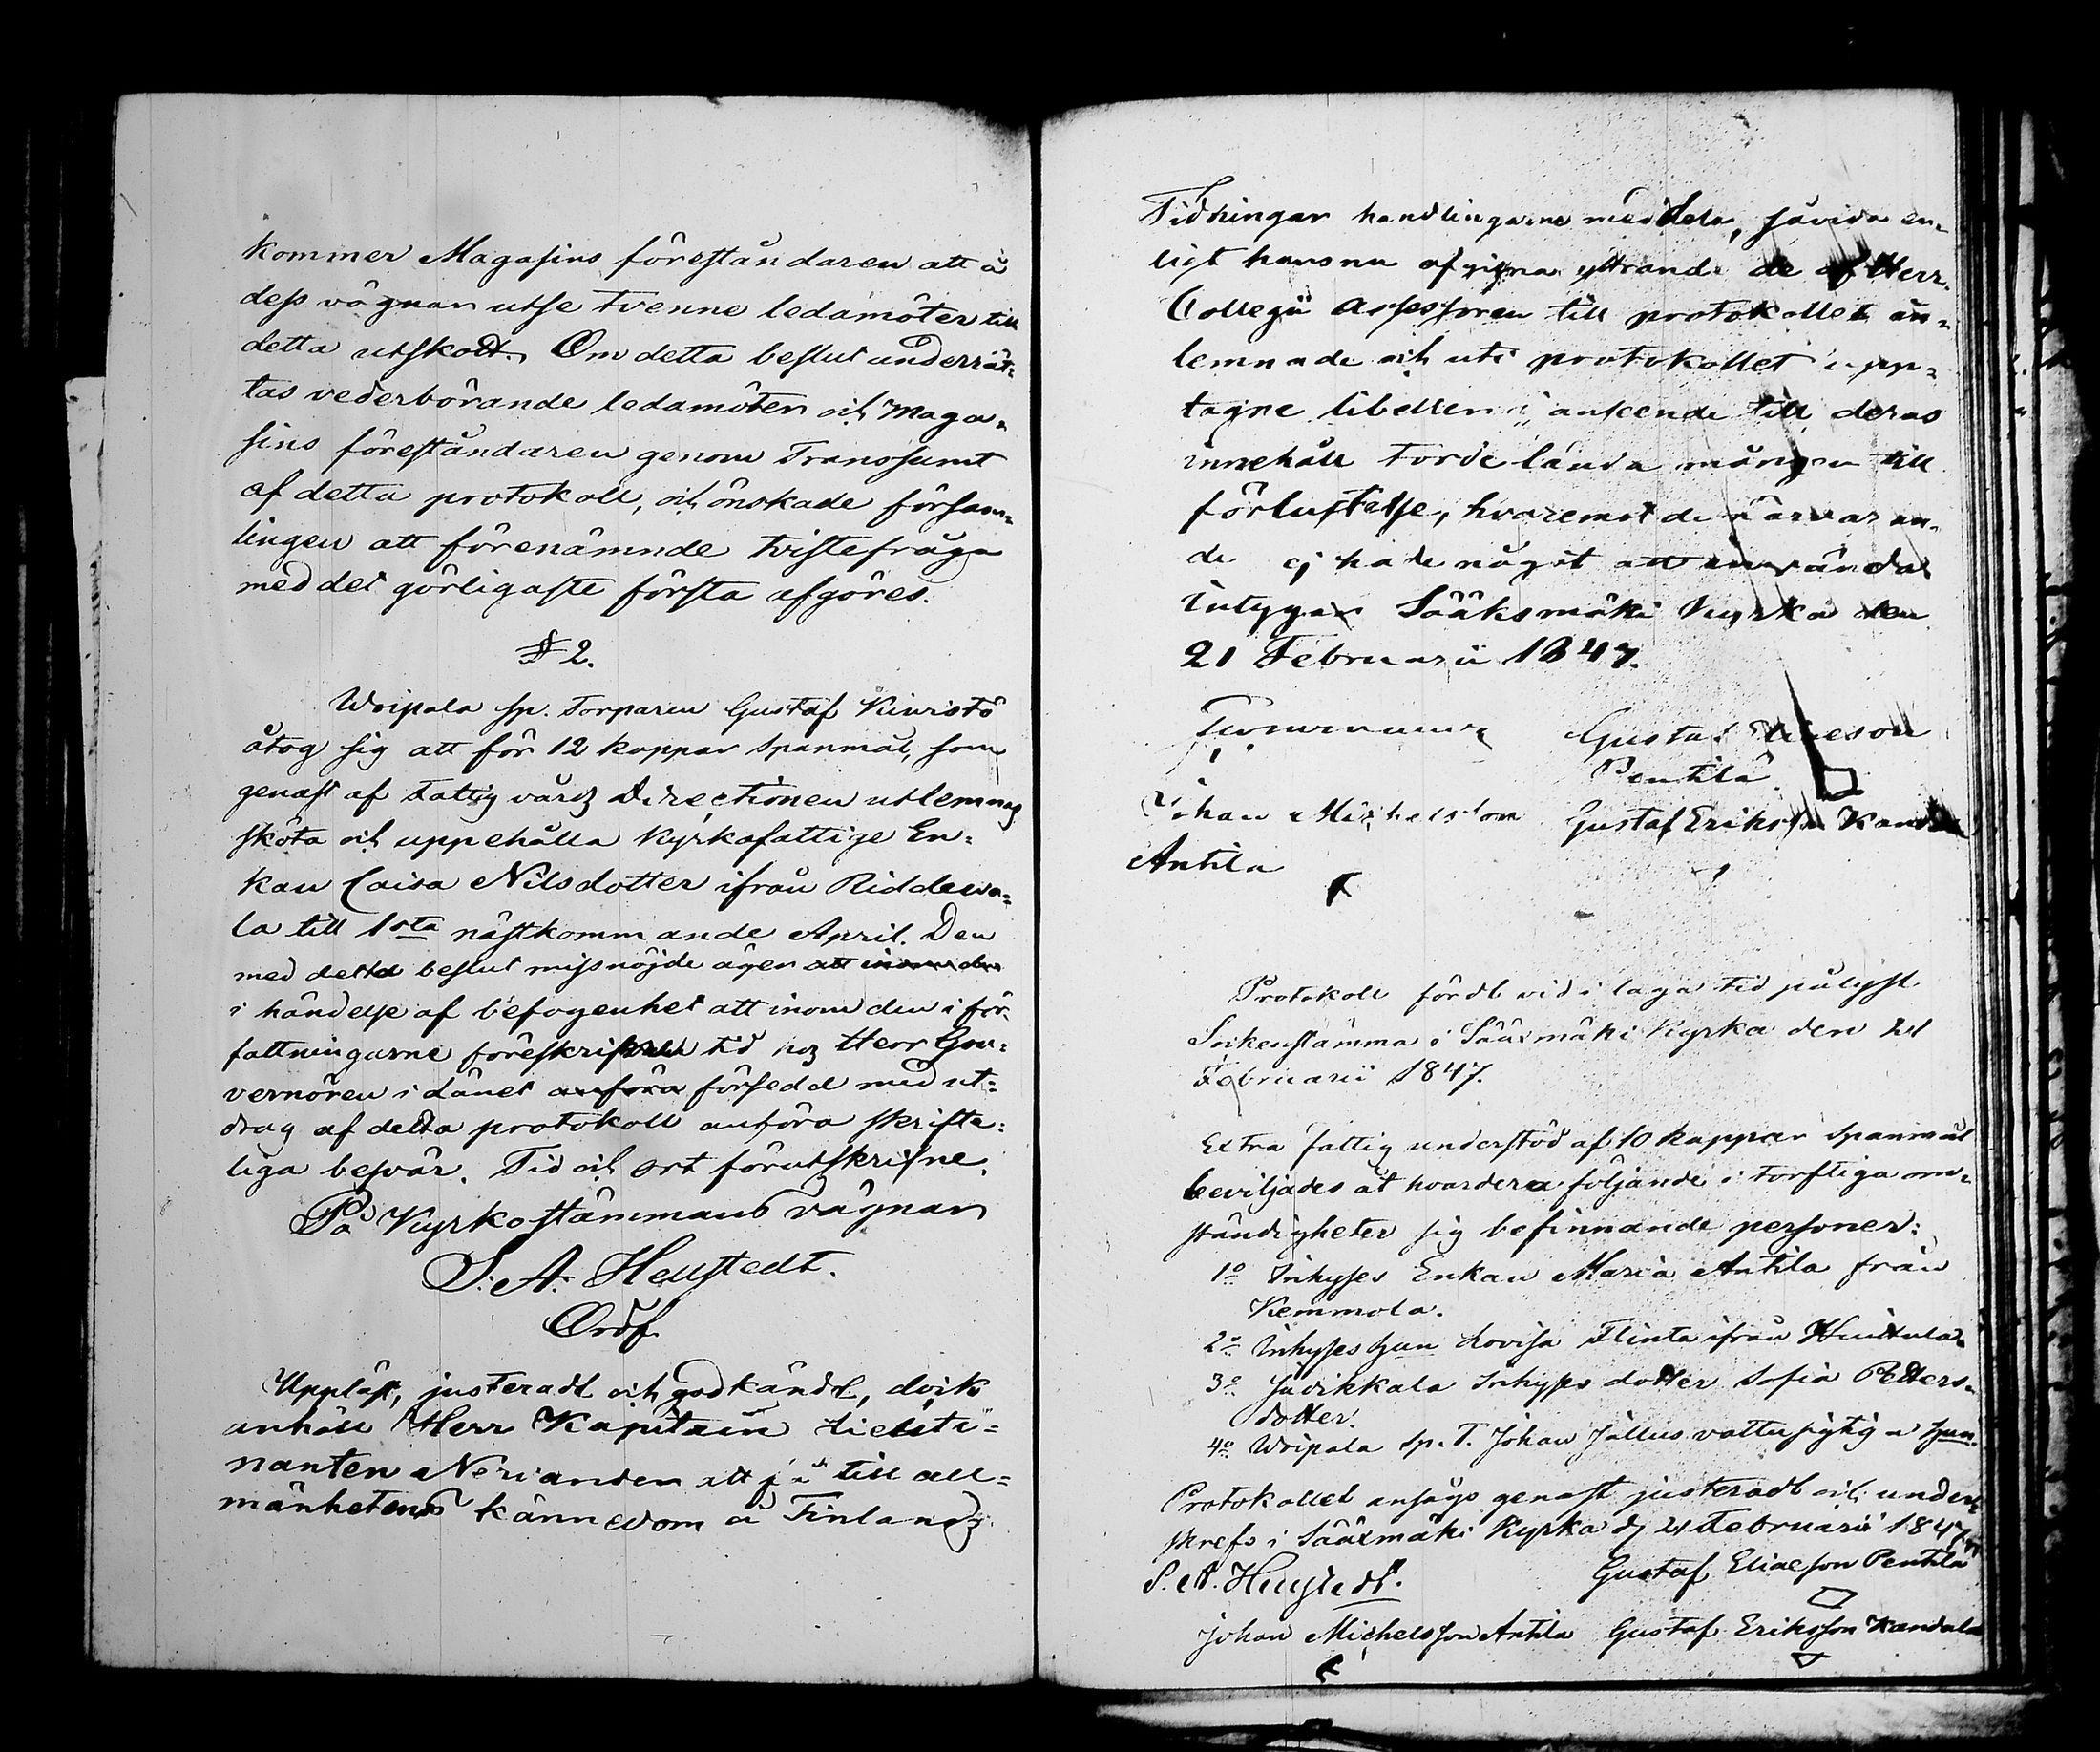 kommer Magasins föreståndaren att å
dess vägnar utse tvenne ledamöter till
detta utskott. Om detta beslut underrät=
tas vederbörande ledamöter och Maga=
sins föreståndaren genom Transsumt
af detta protokoll, och önskade försam=
lingen att förenämnde tvistefråga
med det görligaste första afgöres.
§ 2.
Woipala sp. Torparen Gustaf Kivistö
åtog sig att för 12 kappar Spanmål, som
genast af Fattigvårds Directionen utlemnas
sköta och uppehålla Kyrkofattige En=
kan Caisa Nilsdotter ifrån Riddewa=
la till 1sta nästkommande April. Den
med detta beslut missnöjde äger att inom den
i händelse af befogenhet att inom den i för=
fattningarne föreskrifven tid hos Herr Gou=
vernören i Länet anföra försedd med ut=
drag af detta protokoll anföra skrifte=
liga besvär. Tid och ort förutskrifne.
På Kyrkostämmans vägnar
S. A. Heustedt.
Ordf.
Uppläst, justeradt och godkändt, dock
anhöll Herr Kapitain Lieute=
nanten Nervander att få till all=
mänhetens kännedom å Finlands
Tidningar handlingarne meddela, såvida en=
ligt hans nu afgifna yttrande de af Herr
Collegii Assessoren till protokollet in=
lemnade och uti protokollet upp=
tagne libeller i anseende till deras
innehåll torde lända mången till
förlustelse, hvaremot de närvaran=
de ej hade något att invända
intygar Sääksmäki Kyrka den
21 Februarii 1847.
Gustaf Eliaeson
Pentilä
Johan Michelsson Gustaf Eriksson Kandala
Antila
Protokoll fördt vid i laga tid pålyst
Sockenstämma i Sääxmäki Kyrka den 21
Februarii 1847.
Extra fattig understöd af 10 kappar Spanmål
beviljades åt hvardera följande i torftiga om=
ständigheter sig befinnande personer:
1o Inhyses Enkan Maria Antila från
Kemmola.
2o Inhyses hjon Lovisa Flinta ifrån Huittula.
3o Judikkala Inhyses dotter Sofia Petters=
dotter.
4o Woipala Sp. T. Johan Jallus vattusigtig a hjon.
Protokollet ansågs genast justeradt och under=
skrefs i Sääxmäki Kyrka d. 21 Februarii 1847.
S. A. Heustedt. Gustaf Eliaeson Pentilä
Johan Michelsson Antila Gustaf Eriksson Kandala